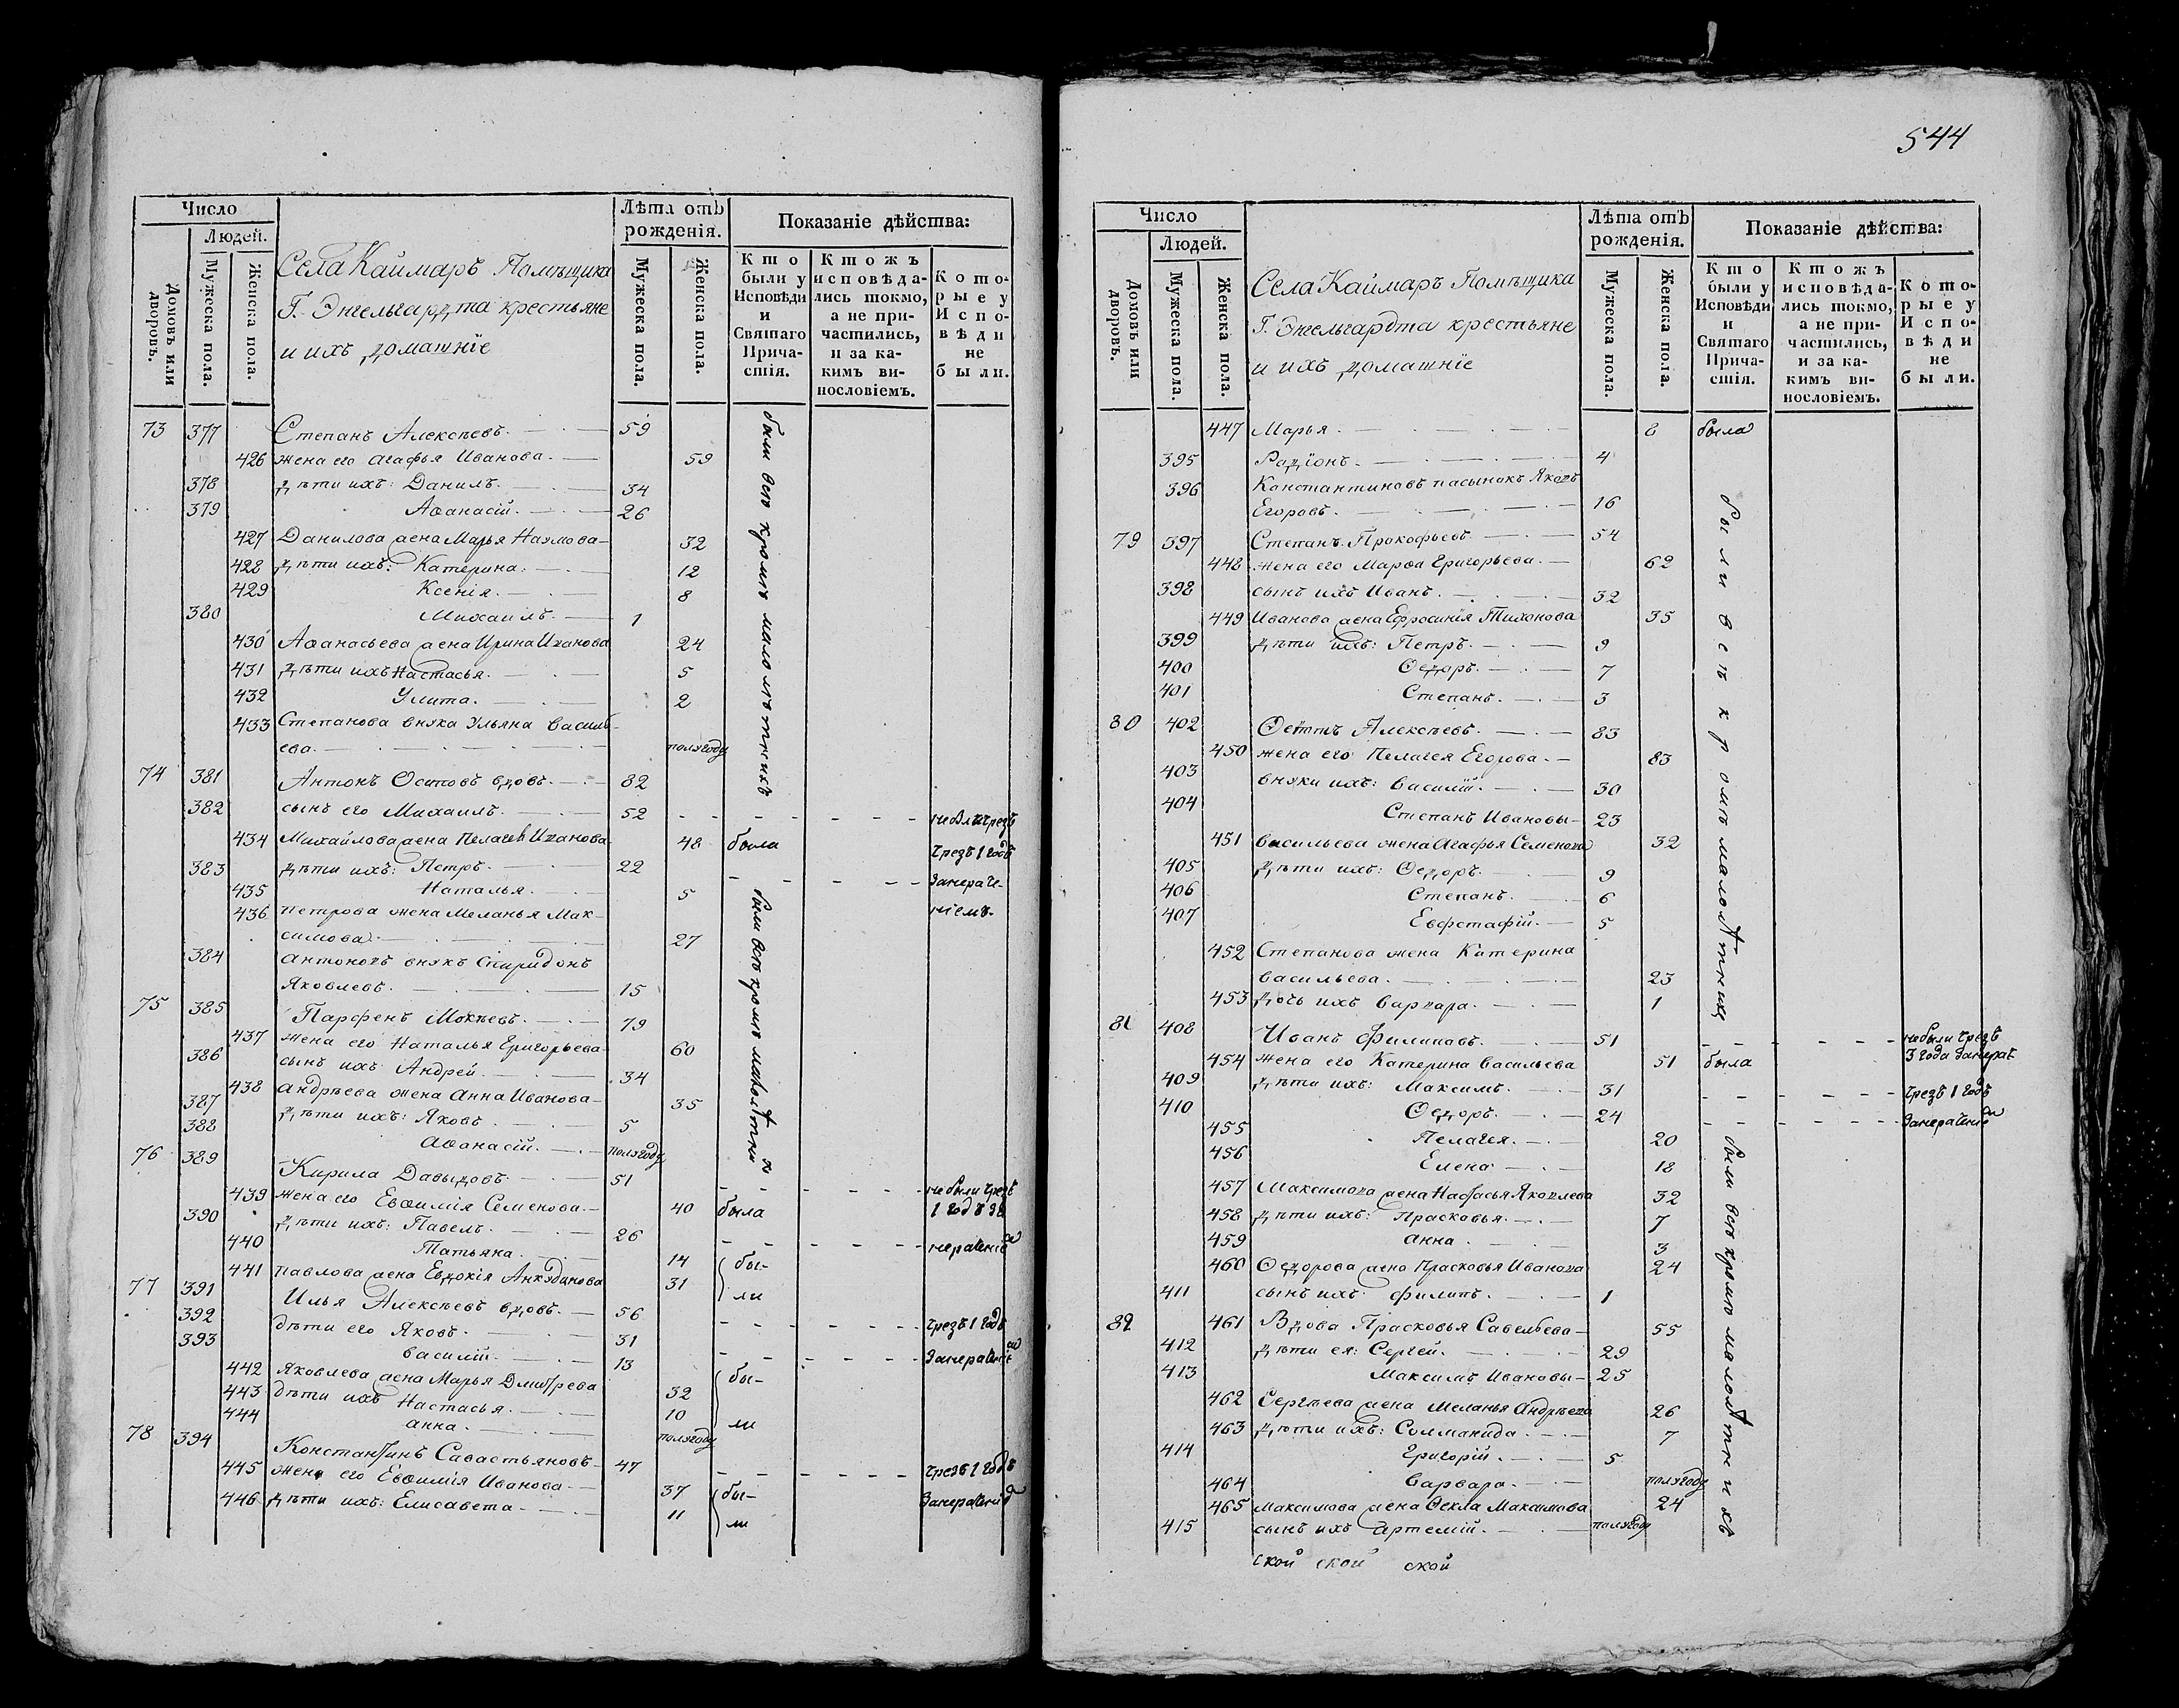 Число
Людей.
Домовъ или дворовъ.
Мужеска пола.
Женска пола.
Села Каймаръ Помѣщика
Г. Энгельгардта крестьяне
и ихъ домашнiе
Лѣта отъ рожденія.
Мужеска пола.
Женска пола.
Показаніе дѣйства:
Кто были у Исповѣди и Святаго Причастія.
Ктожъ исповѣдались токмо, а не причастились, и за какимъ винословіемъ.
Которые у Исповѣди не были.
73 377 Степанъ Алексѣевъ. 59
426 жена его Агафья Иванова. 59
378 Дѣти ихъ: Данилъ. 34
379 Аѳанасій. 26
427 Данилова жена Марья Наумова 32
428 Дѣти ихъ: Катерина. 12
429 Ксенія. 8
380 Михаилъ. 1
430 Аѳанасьева жена Ирина Иванова 24
431 Дѣти ихъ Настасья. 5
432 Улита. 2
433 Степанова внука Ульяна Василь-
ева. полугоду
были всѣ кромѣ малолѣтнихъ
74 381 Антонъ Осиповъ вдовъ. 82
382 сынъ его Михаилъ. 52
434 Михайлова жена Пелагея Иванова 48 была
чрезъ 1 годъ
383 Дѣти ихъ: Петръ. 22
435 Наталья. 5
436 Петрова жена Меланья Мак-
симова. 27
384 Антоновъ внукъ Спиридонъ
Яковлевъ. 15
75 385 Парфенъ Мокѣевъ. 79
437 жена его Наталья Григорьева 60
386 сынъ ихъ Андрей. 34
438 Андрѣева жена Анна Иванова 35
387 Дѣти ихъ: Яковъ. 5
388 Аѳанасій. полугоду
были всѣ кромѣ
76 389 Кирила Давыдовъ. 51 не были чрезъ
439 жена его Евѳимія Семенова. 40 была 1 годъ за
390 Дѣти ихъ: Павелъ. 26
440 Татьяна. 14 бы-
441 Павлова жена Евдокія Анкудинова 31 ли
77 391 Илья Алексѣевъ вдовъ. 56
392 дѣти его Яковъ. 31 чрезъ 1 годъ
393 Василій. 13
442 Яковлева жена Марья Дмитрева 32 бы-
443 дѣти ихъ Настасья. 10
444 Анна. полугоду ли
78 394 Константинъ Савастьяновъ 47 чрезъ 1 годъ
445 жена его Евѳимія Иванова 37 бы-
446 Дѣти ихъ: Елисавета. 11 ли
544
Число
Людей.
Домовъ или дворовъ.
Мужеска пола.
Женска пола.
Села Каймаръ Помѣщика
Г. Энгельгардта крестьяне
и ихъ домашнiе
Лѣта отъ рожденія.
Мужеска пола.
Женска пола.
Показаніе дѣйства:
Кто были у Исповѣди и Святаго Причастія.
Ктожъ исповѣдались токмо, а не причастились, и за какимъ винословіемъ.
Которые у Исповѣди не были.
447 Марья. 8 была
395 Радіонъ. 4
396 Константиновъ пасынокъ Яковъ
Егоровъ. 16
79 397 Степанъ Прокофьевъ. 54
448 жена его Марѳа Григорьева. 62
398 сынъ ихъ Иванъ. 32
449 Иванова жена Ефросинія Тихонова 35
399 Дѣти ихъ: Петръ. 9
400 Ѳедоръ. 7
401 Степанъ. 3
80 402 Алексѣевъ. 83
450 жена его Пелагея Егорова. 83
403 внуки ихъ: Василій. 30
404 Степанъ Ивановы 23
451 Васильева жена Агафья Семенова 32
405 Дѣти ихъ: Ѳедоръ. 9
406 Степанъ. 6
407 Евфстафій. 5
452 Степанова жена Катерина
Васильева. 23
453 дочь ихъ Варвара. 1
были всѣ кромѣ малолѣтнихъ
81 408 Иванъ Филиповъ. 51 не были чрезъ
454 жена его Катерина Васильева 51 была 3 года
409 Дѣти ихъ: Максимъ. 31 чрезъ 1 годъ
410 Ѳедоръ. 24
455 Пелагея. 20
456 Елена. 18
457 Максимова жена Настасья Яковлева 32
458 Дѣти ихъ: Прасковья. 7
459 Анна. 3
460 Ѳедорова жена Прасковья Иванова 24
411 сынъ ихъ Филипъ. 1
82 461 Вдова Прасковья Савельева 55
412 Дѣти ея: Сергей. 29
413 Максимъ Ивановы 25
462 Сергѣева жена Меланья Андрѣева 26
463 Дѣти ихъ: Соломанида. 7
414 Григорій. 5
464 Варвара. полугоду
465 Максимова жена Ѳекла Максимова 24
415 сынъ ихъ Артемій. полугоду
были всѣ кромѣ малолѣтнихъ
ской ской ской